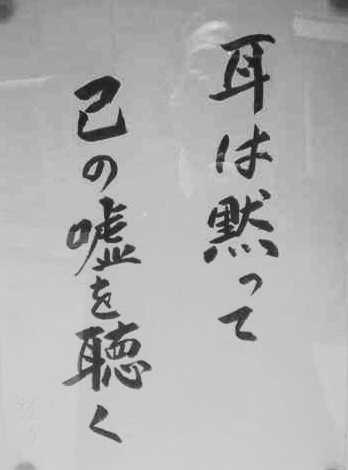 耳は黙って
己の嘘を聴く